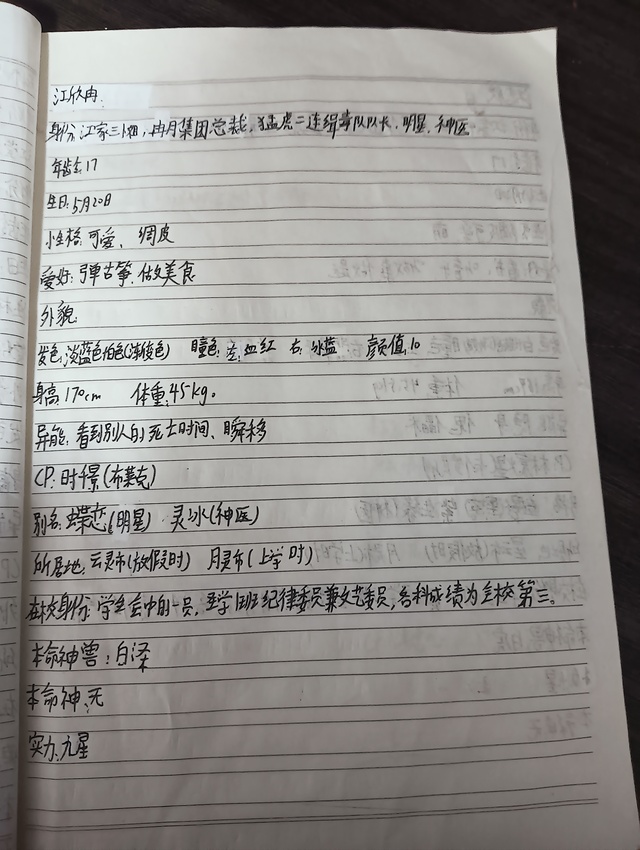 江欣冉
身份:江家三小姐,冉月集团总裁,猛虎二连缉毒队队长、明星、神医
年龄:17
生日:5月20日
性格:可爱、绸皮
爱好:弹古筝、做美食
外貌:
发色:淡蓝色白色(渐变色) 瞳色:左:血红 右:冰蓝 颜值:10
身高:170cm 体重:45kg。
异能:看到别人的死亡时间、瞬移
CP:时千景(布莱克)
别名:蝶恋(明星) 灵冰(神医)
所居地:云灵市(放假时) 月灵市(上学时)
在校身份:学生会中的一员,班纪律委员兼文艺委员,各科成绩为全校第三。
本命神兽:白泽
本命神:无
实力:九星